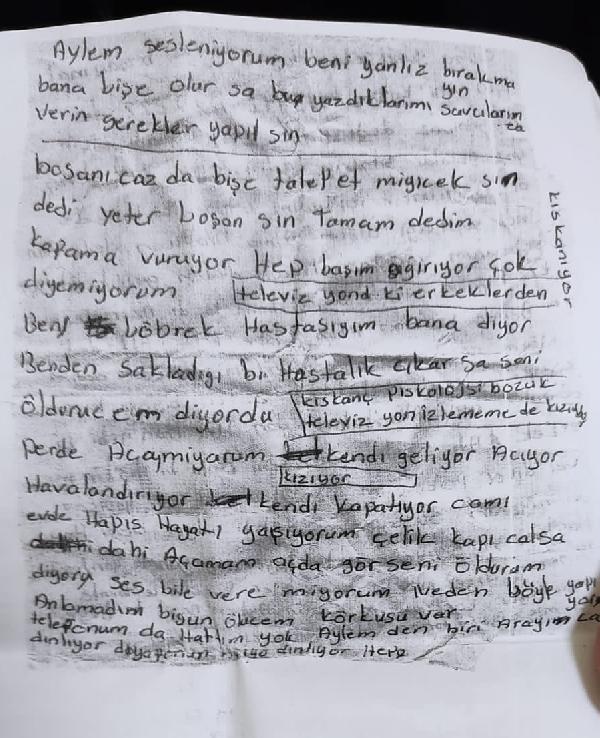 Aylem sesleniyorum beni yanlız bırakma
yın
bana bişe olur sa bu yazdıklarımı savcıların
za
verin gerekler yapıl sın
boşanıcaz da bişe talepet miyicek sin
dedi yeter boşan sın Tamam dedim
kafama vuruyor Hep başım ağırıyor çok
diyemiyorum televiz yond ki erkeklerden
kıskanıyor
Beni böbrek Hastasıyım bana diyor
Benden sakladığı bi Hastalık çıkar sa seni
öldürüc em diyordu kıskanç piskolojsi bozuk
televiz yon izlememe de kızıyor
perde Açamıyarum kendi geliyor Açıyor
kızıyor
Havalandırıyor kendi kapatıyor camı
evde Hapis Hayatı yaşıyorum çelik kapı calsa
dahi Açamam açda gör seni öldüram
diyory ses bile vere miyorum Neden böyle yapı
yor
Anlamadım bigun ölücem korkusu var
telefonum da Hattım yok Aylem den biri Arayım ca
dinliyor dinliyor